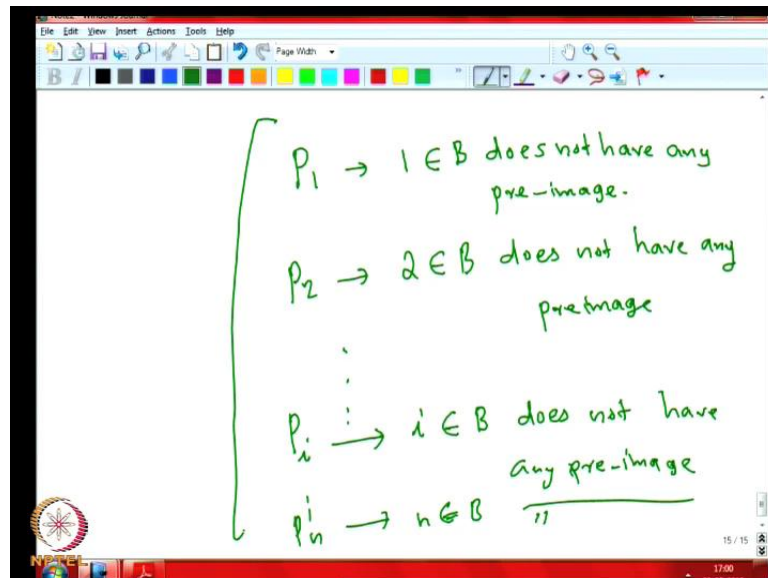 File Edit View Insert Actions Tools Help
Page Width
B I
P1 → 1 ∈ B does not have any
pre-image.
P2 → 2 ∈ B does not have any
preimage
⋮
Pi → i ∈ B does not have
any pre-image
Pn → n ∈ B "
15 / 15
NPTEL
17:00